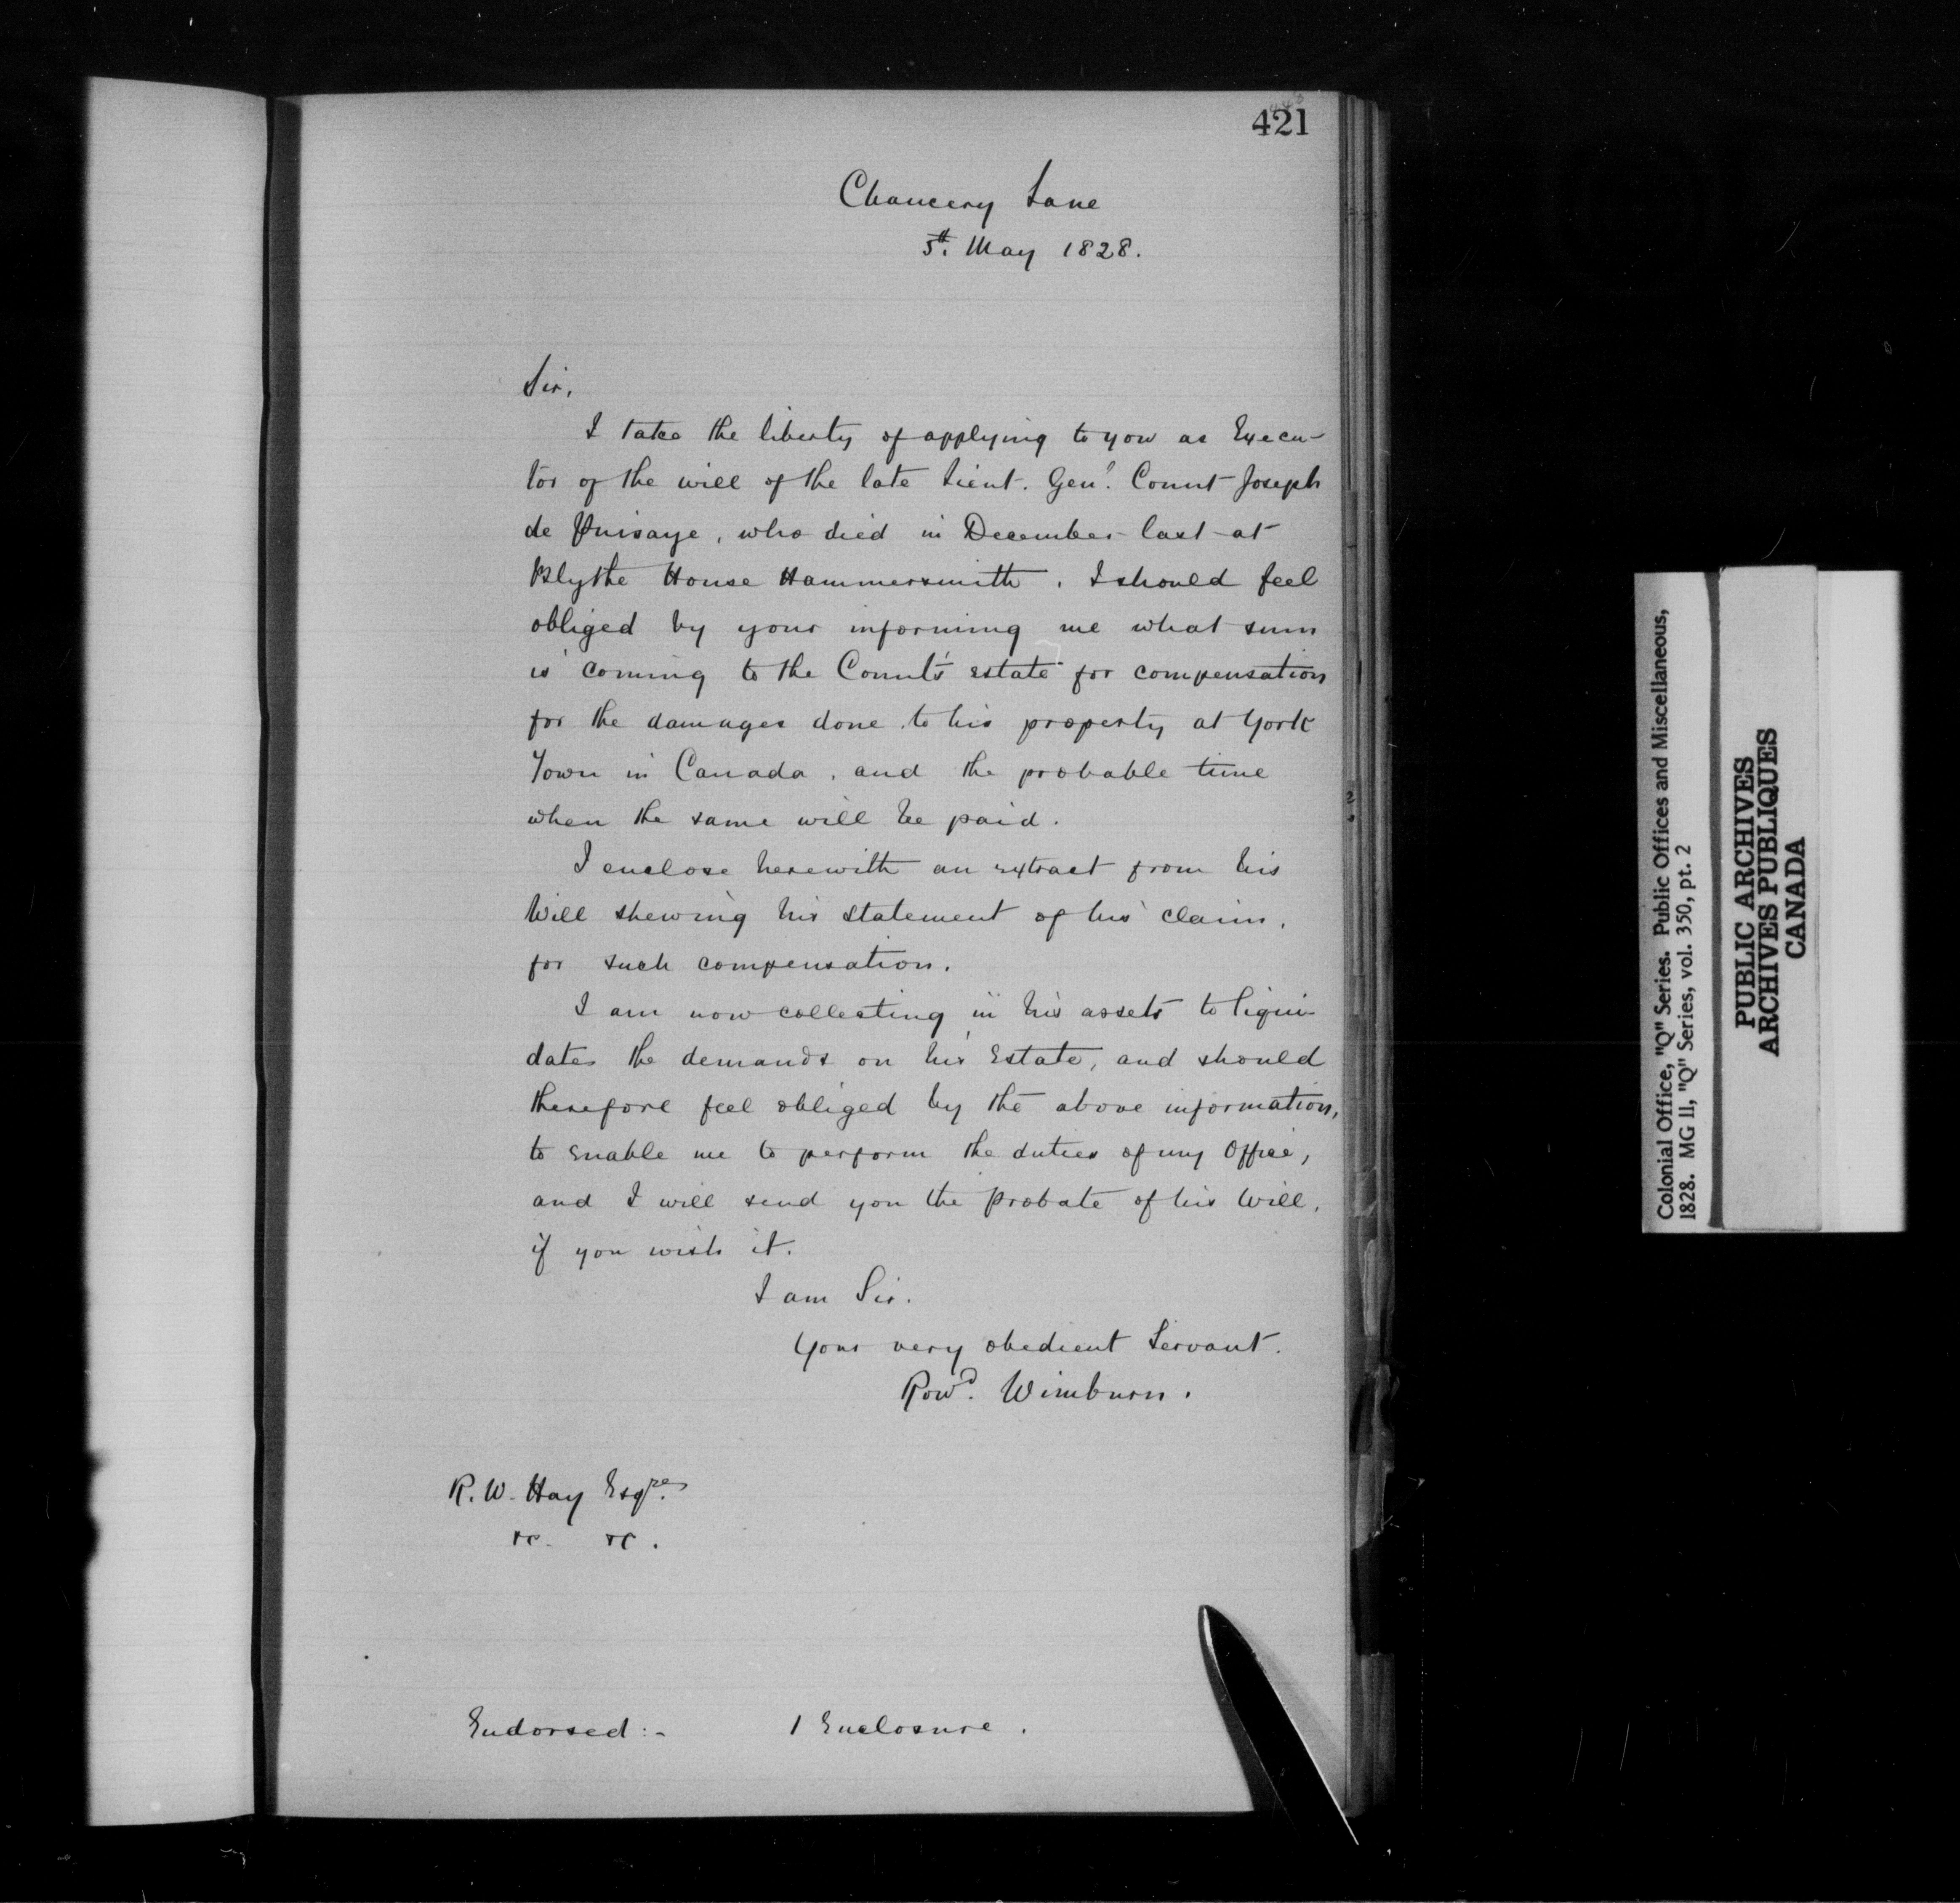 421
Chancery Lane
5th. May 1828.
Sir,
I take the liberty of applying to you as Execu-
tor of the will of the late Lieut. Genl. Count Joseph
de Puisaye, who died in December last at
Blythe House Hammersmith. I should feel
obliged by your informing me what sum
is coming to the Count's estate for compensation
for the damages done to his property at York
Town in Canada, and the probable time
when the same will be paid.
I enclose herewith an extract from his
Will shewing his statement of his claim,
for such compensation.
I am now collecting in his assets to liqui-
date the demands on his Estate, and should
therefore feel obliged by the above information,
to enable me to perform the duties of my Office,
and I will send you the probate of his Will,
if you wish it.
I am Sir.
Your very obedient Servant.
Rowd. Wimburn.
R. W. Hay Esqre.
&c. &c.
Endorsed:- 1 Enclosure.
Colonial Office, "Q" Series. Public Offices and Miscellaneous,
1828. MG 11, "Q" Series, vol. 350, pt. 2
PUBLIC ARCHIVES
ARCHIVES PUBLIQUES
CANADA